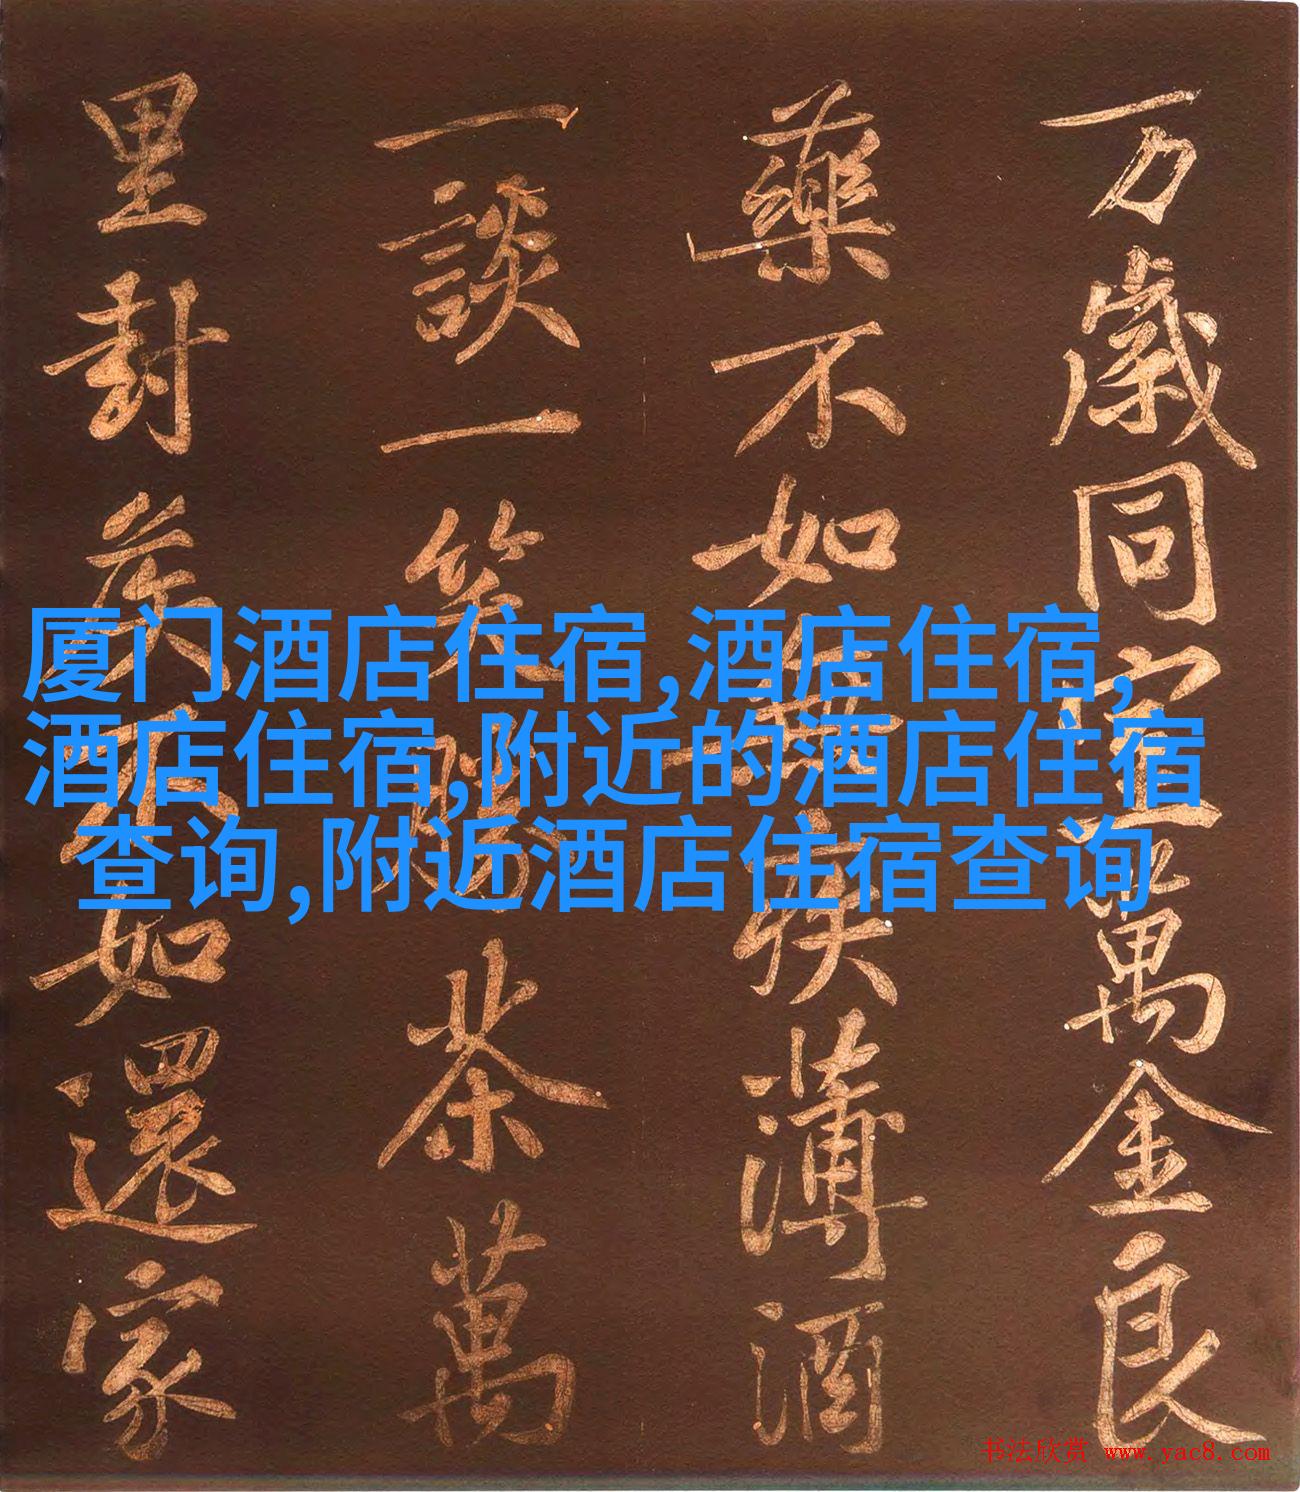 万歲同宜萬金良
藥不如無疾薄酒
一談一笑勝茶萬
里封侯不如還家
厦门酒店住宿,酒店住宿,
酒店住宿,附近的酒店住宿
查询,附近酒店住宿查询
书法欣赏 www.yac8.com